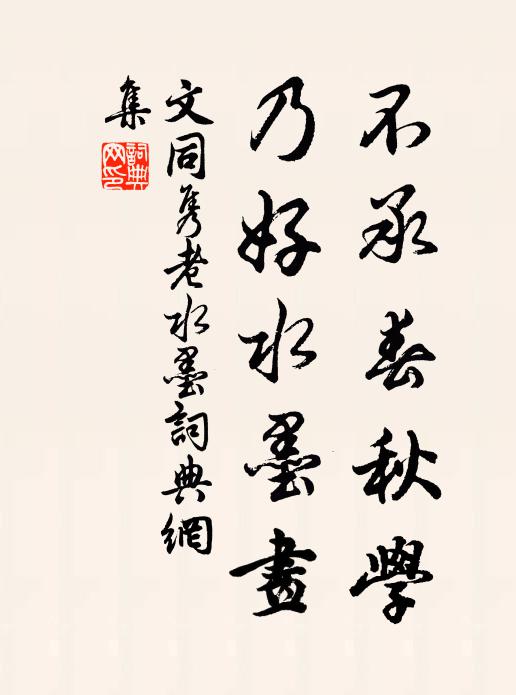 不承春秋學
乃好水墨畫
文同雋老水墨詞典網
集
詞典網印